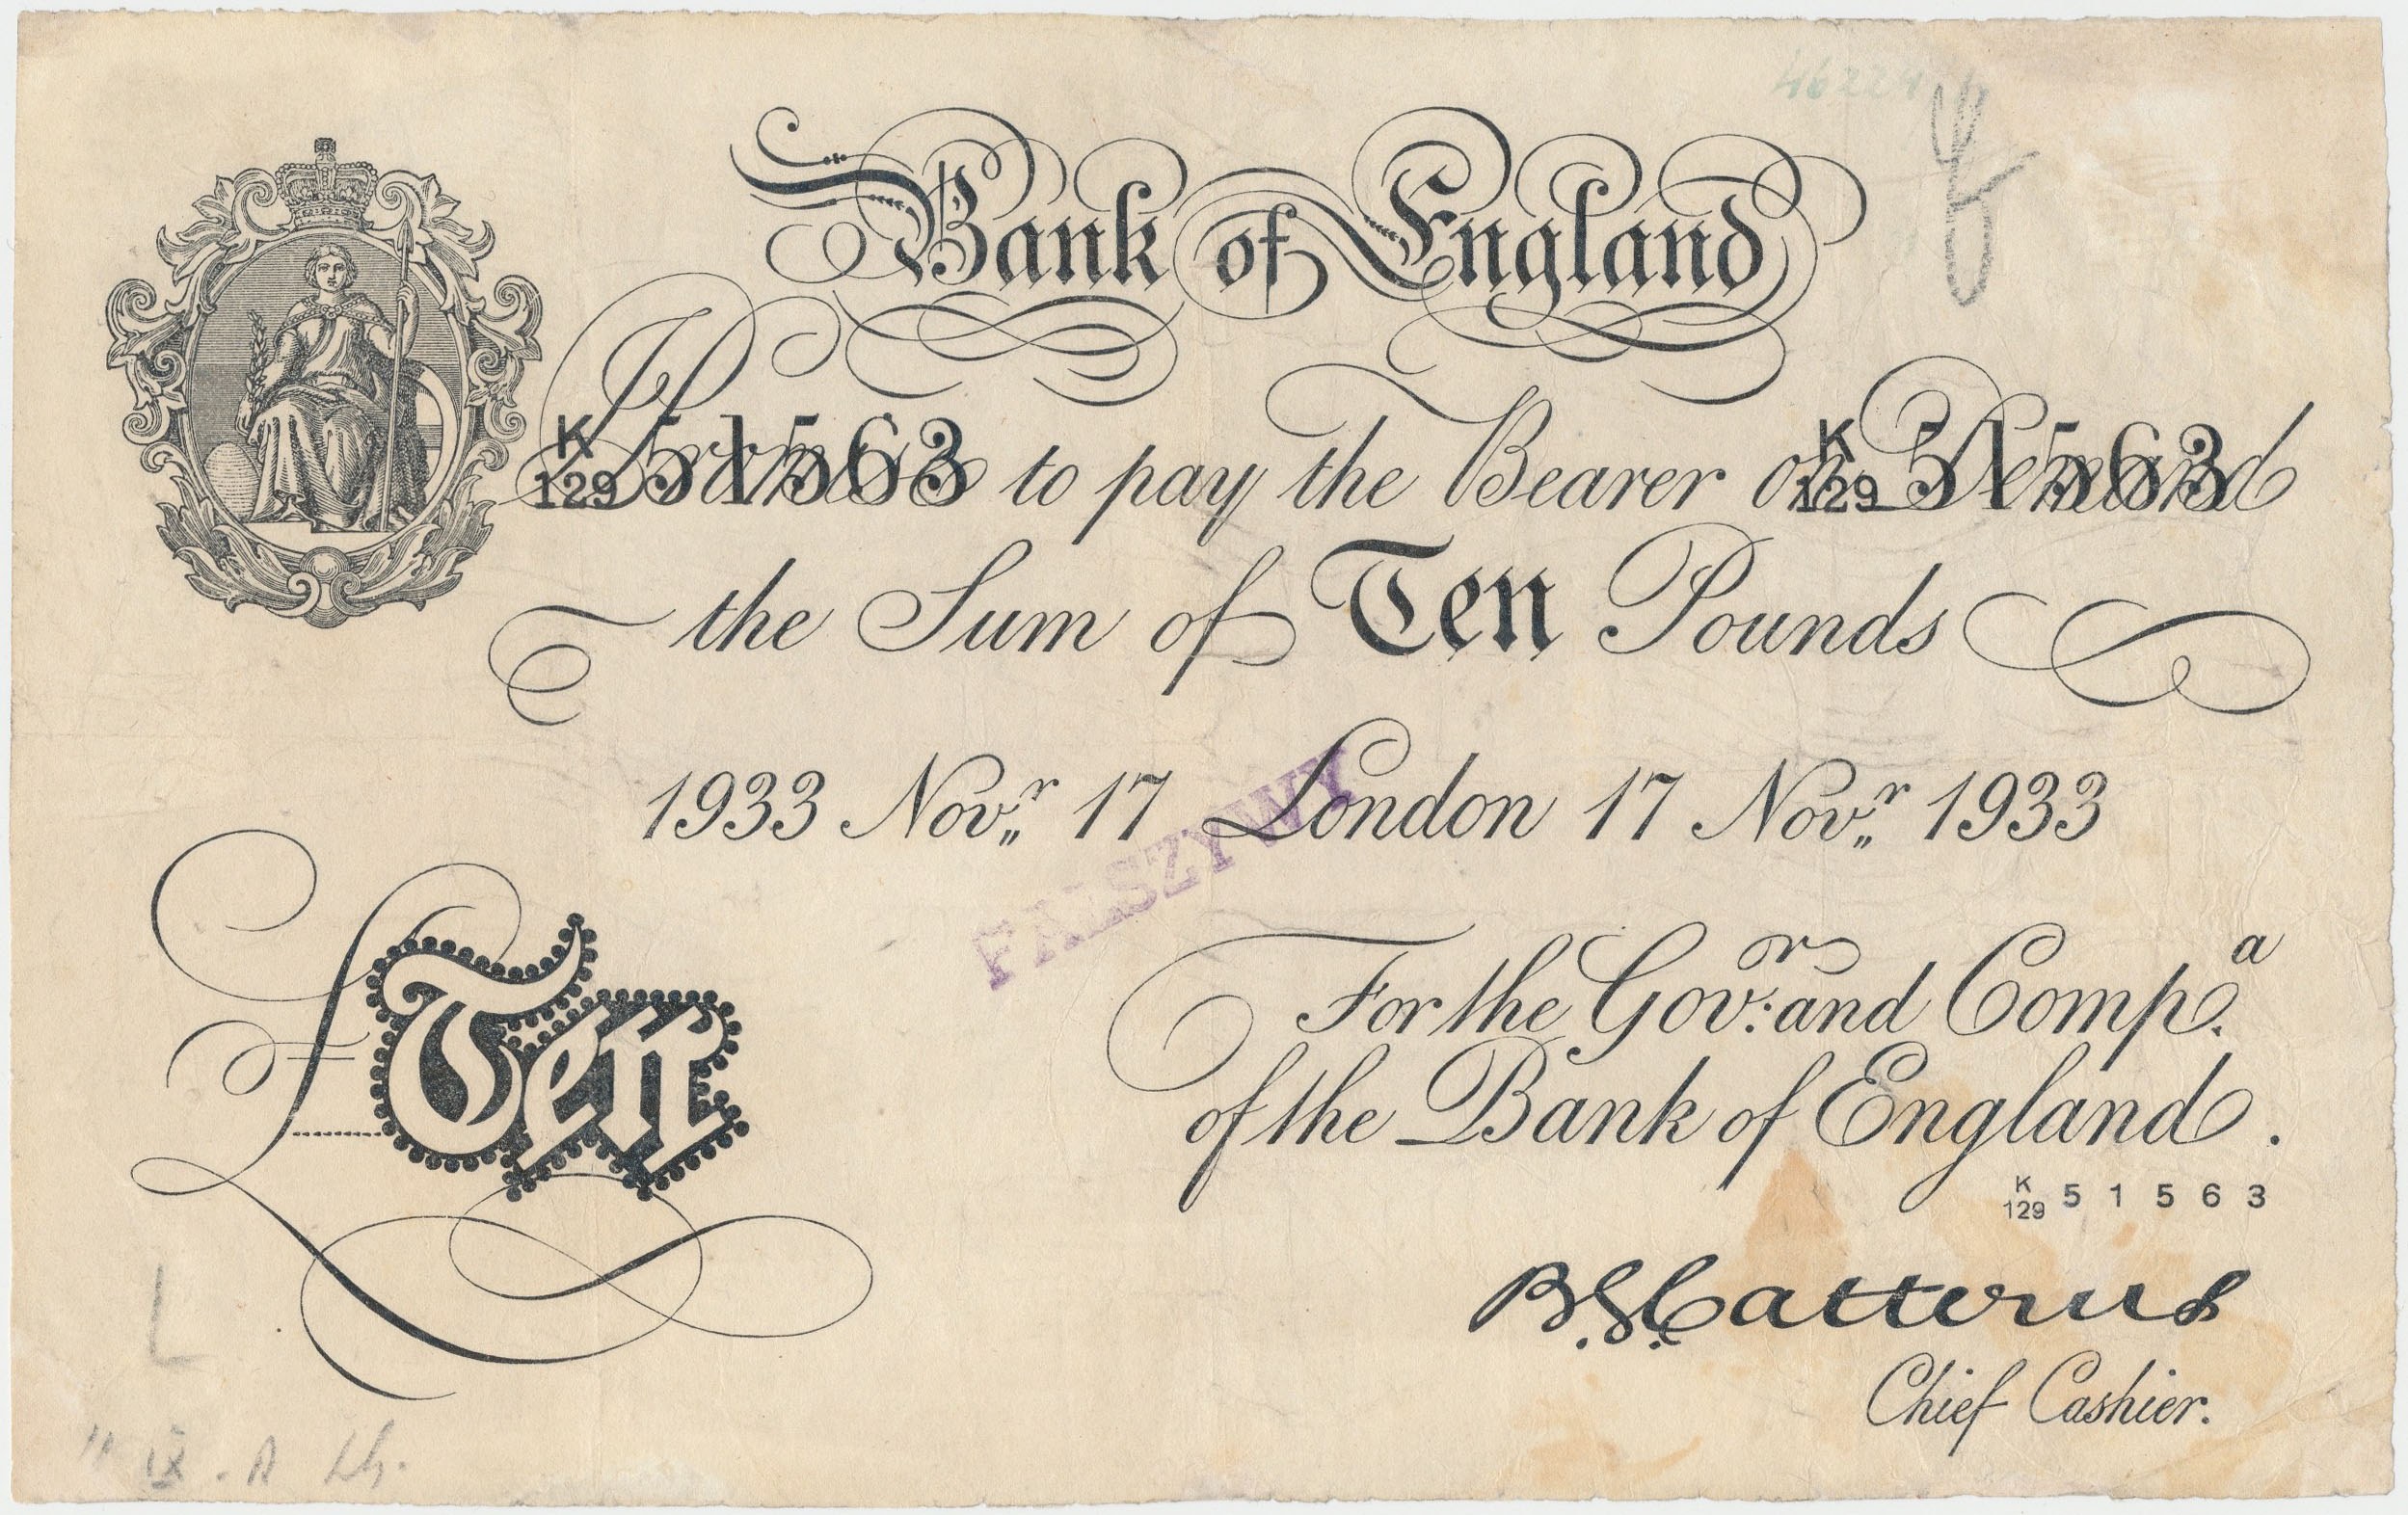 46224
Bank of England
K
129 51563 Promise to pay the Bearer on Demand K
129 51563
the Sum of Ten Pounds
1933 Nov.r 17 London 17 Nov.r 1933
FALSZYWY
£ Ten
For the Gov.or: and Comp.a
of the Bank of England.
K
129 51563
B.G. Catterns
Chief Cashier.
L